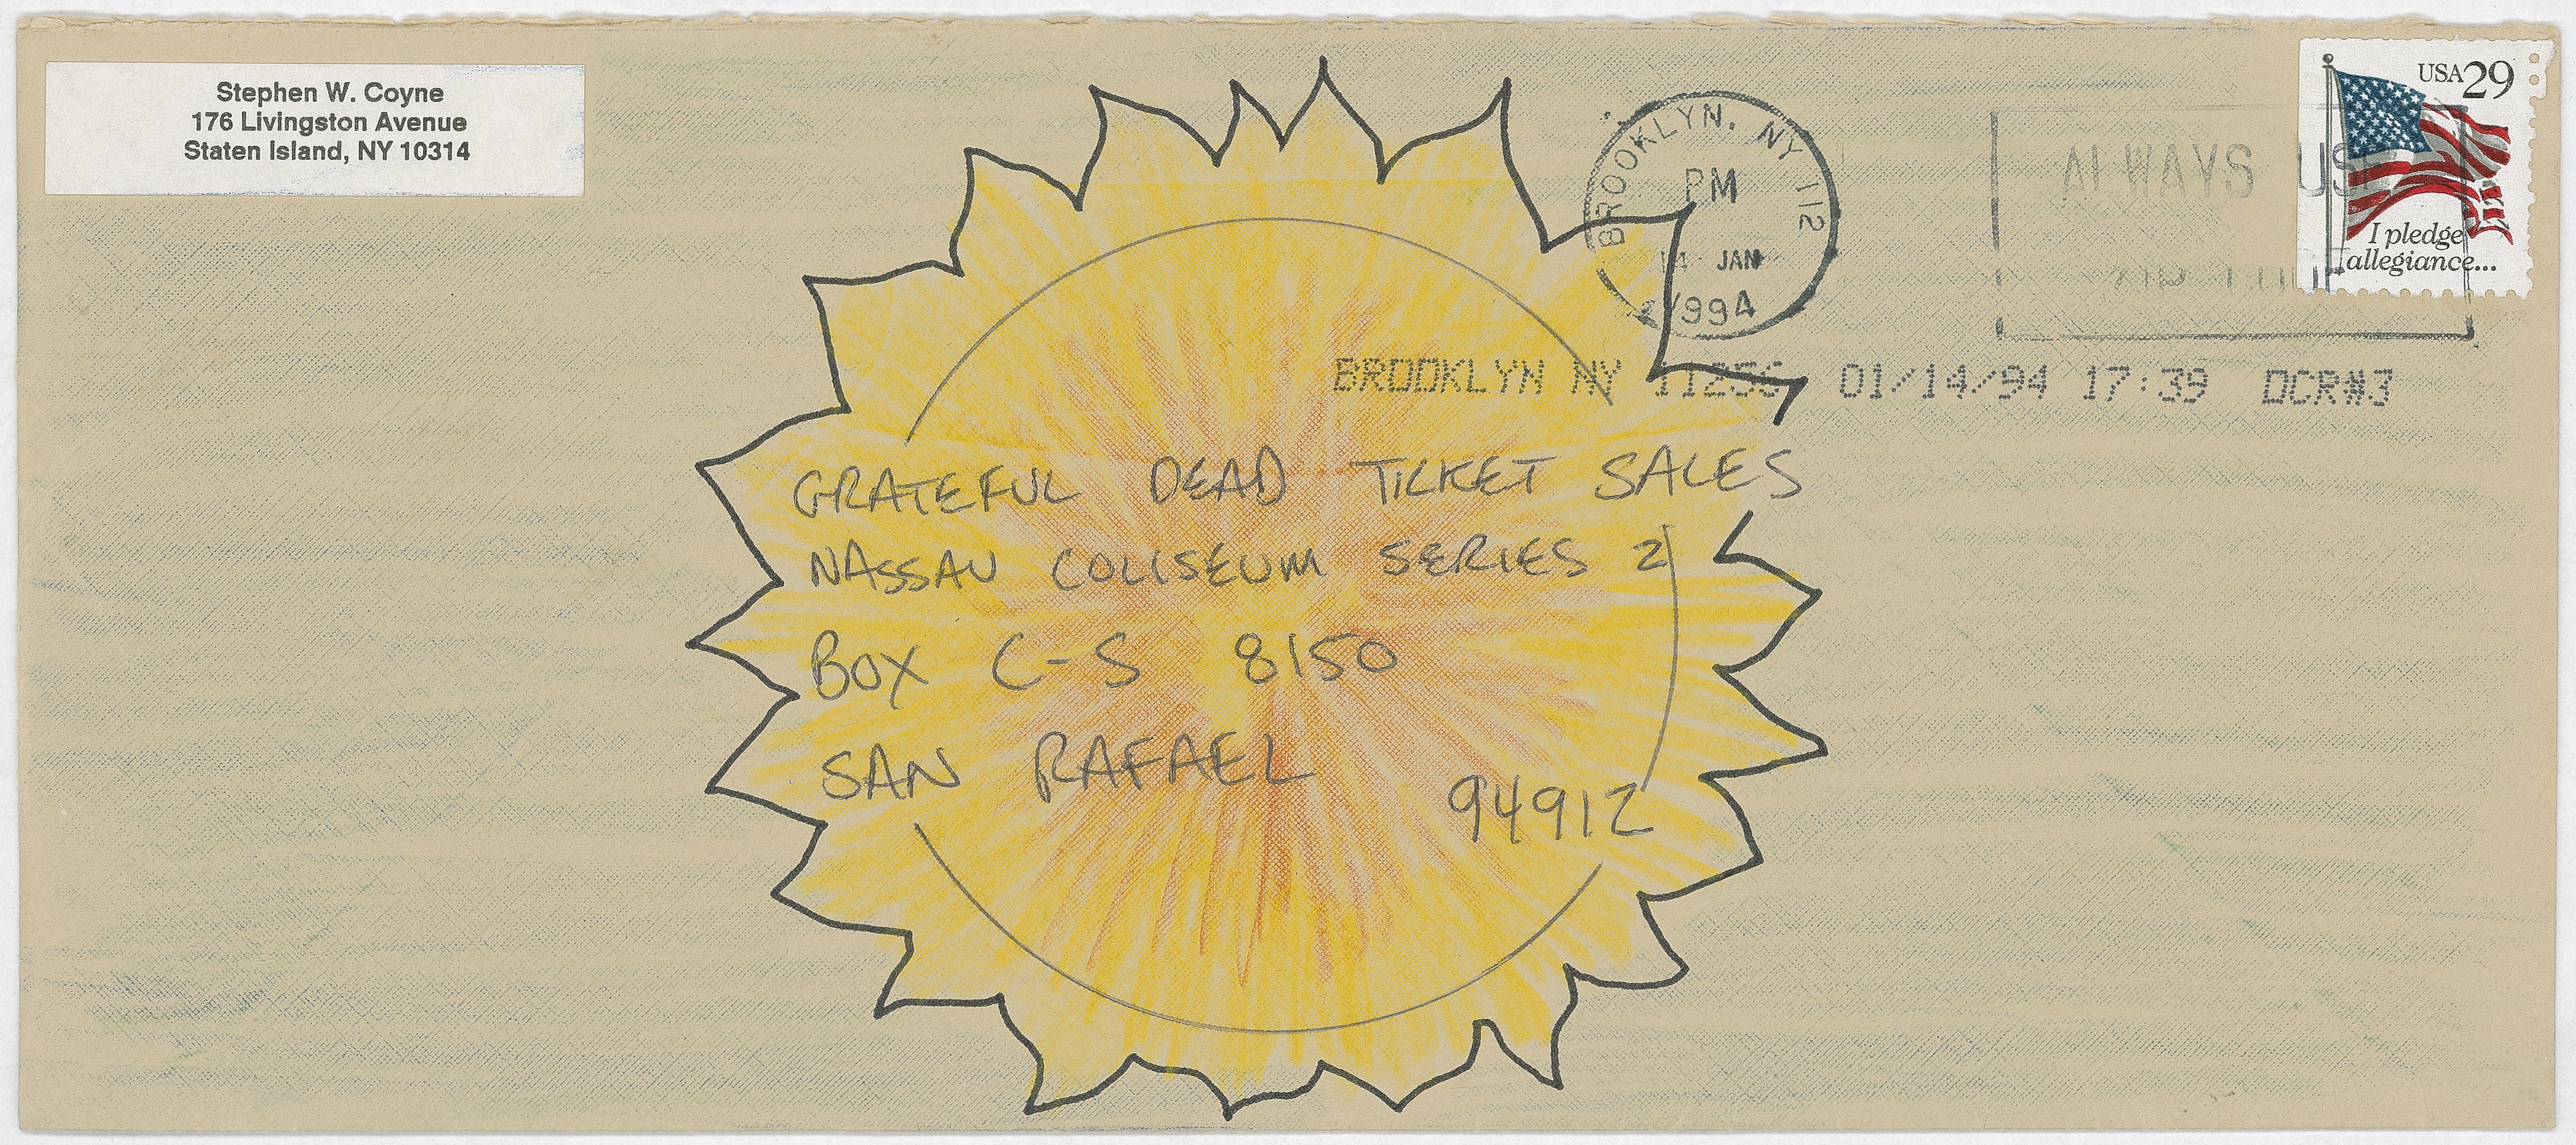 Stephen W. Coyne
176 Livingston Avenue
Staten Island, NY 10314
USA 29
I pledge
allegiance...
BROOKLYN, NY 112
PM
14 JAN
1994
ALWAYS USE
BROOKLYN NY 11256 01/14/94 17:39 DCR#3
GRATEFUL DEAD TICKET SALES
NASSAU COLISEUM SERIES 2
BOX C-S 8150
SAN RAFAEL
94912